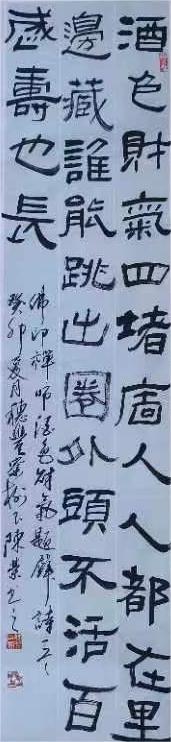 酒色財氣四堵廧人人都在里
邊藏誰能跳出圈外頭不活百
歲壽也長
佛印禪師酒色財氣題壁詩
癸卯夏月 陳